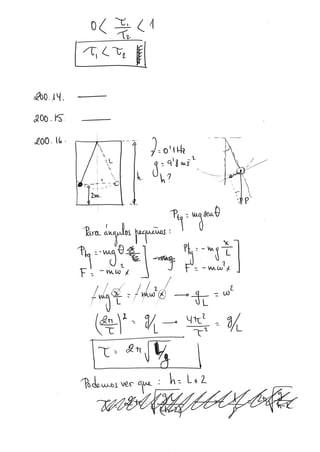 0 < τ₁/τ₂ < 1
τ₁ < τ₂
200.14. ——
200.15 ——
200.16.
L
h
2m
ν = 0'1 Hz
g = 9'8 ms⁻²
h?
P
Ptg = mg senθ
Para ángulos pequeños:
Ptg = -mg θ
F = -mω²x
Ptg = -mg x/L
F = -mω²x
-mg x/L = -mω²x → g/L = ω²
(2π/τ)² = g/L → 4π²/τ² = g/L
τ = 2π √(L/g)
Podemos ver que : h = L + 2